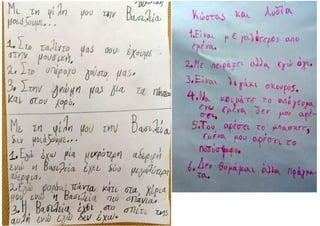 Με τη φίλη μου την Βασιλεία
μοιάζουμε...
1. Στο ταλέντο μας που έχουμε
στην μουσική.
2. Στο υπέροχο γούστο μας.
3. Στην γνώμη μας για τα
και στον χορό.
Με τη φίλη μου την Βασιλεία
δεν μοιάζουμε...
1. Εγώ έχω μία μικρότερη αδερφή
ενώ η Βασιλεία έχει δύο μεγαλύτερα
αδέρφια.
2. Εγώ φοράω πάντα κάτι στα χέρια
μου ενώ η Βασιλεία πιο σπάνια.
3. Η Βασιλεία έχει στο σπίτι της
αυλή ενώ εγώ δεν έχω.
Κώστας και Λυδία
1. Είναι μεγαλύτερος απο
εμένα.
2. Με πειράζει αλλα εγώ όχι.
3. Είναι λιγάκι σκουρος.
4. Να κοιμάτε το απόγευμα
ενώ εμένα δεν μου αρέ-
σει.
5. Του αρέσει το μπασκετ,
εμένα μου αρέσει το
ποδόσφαιρο.
6. Δεν θυμάμαι άλλα πράγμα-
τα.